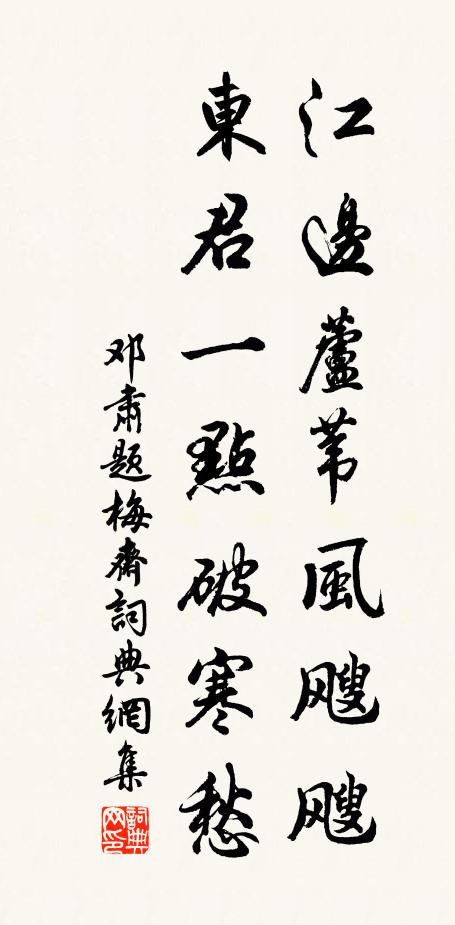 江邊蘆葦風颼颼
東君一點破寒愁
邓肅题梅齋詞典網集
詞典網印